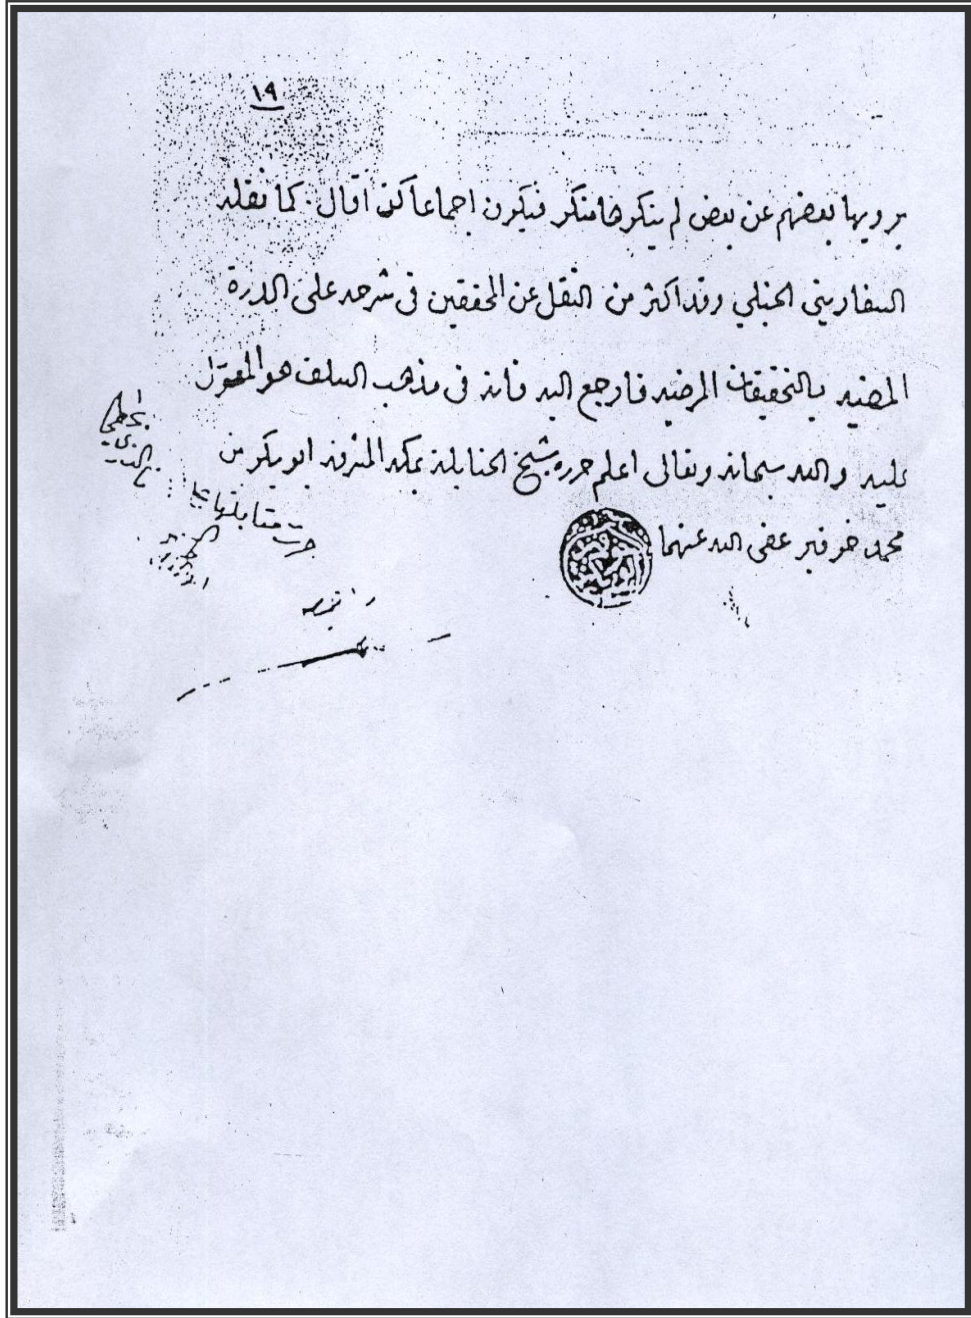 ١٩
يرويها بعضهم عن بعض لم ينكرها منكر فيكون اجماعا كذا قال. كما نقله
السفاريني الحنبلي وقد اكثر من النقل عن المحققين في شرحه على الدرة
المضيه بالتحقيقات المرضيه فارجع اليه فانه في مذهب السلف هو المعول
عليه والله سبحانه وتعالى اعلم حرره شيخ الحنابلة بمكه المشرفه ابو بكر بن
محمد خوقير عفى الله عنهما
جرت مقابلتها